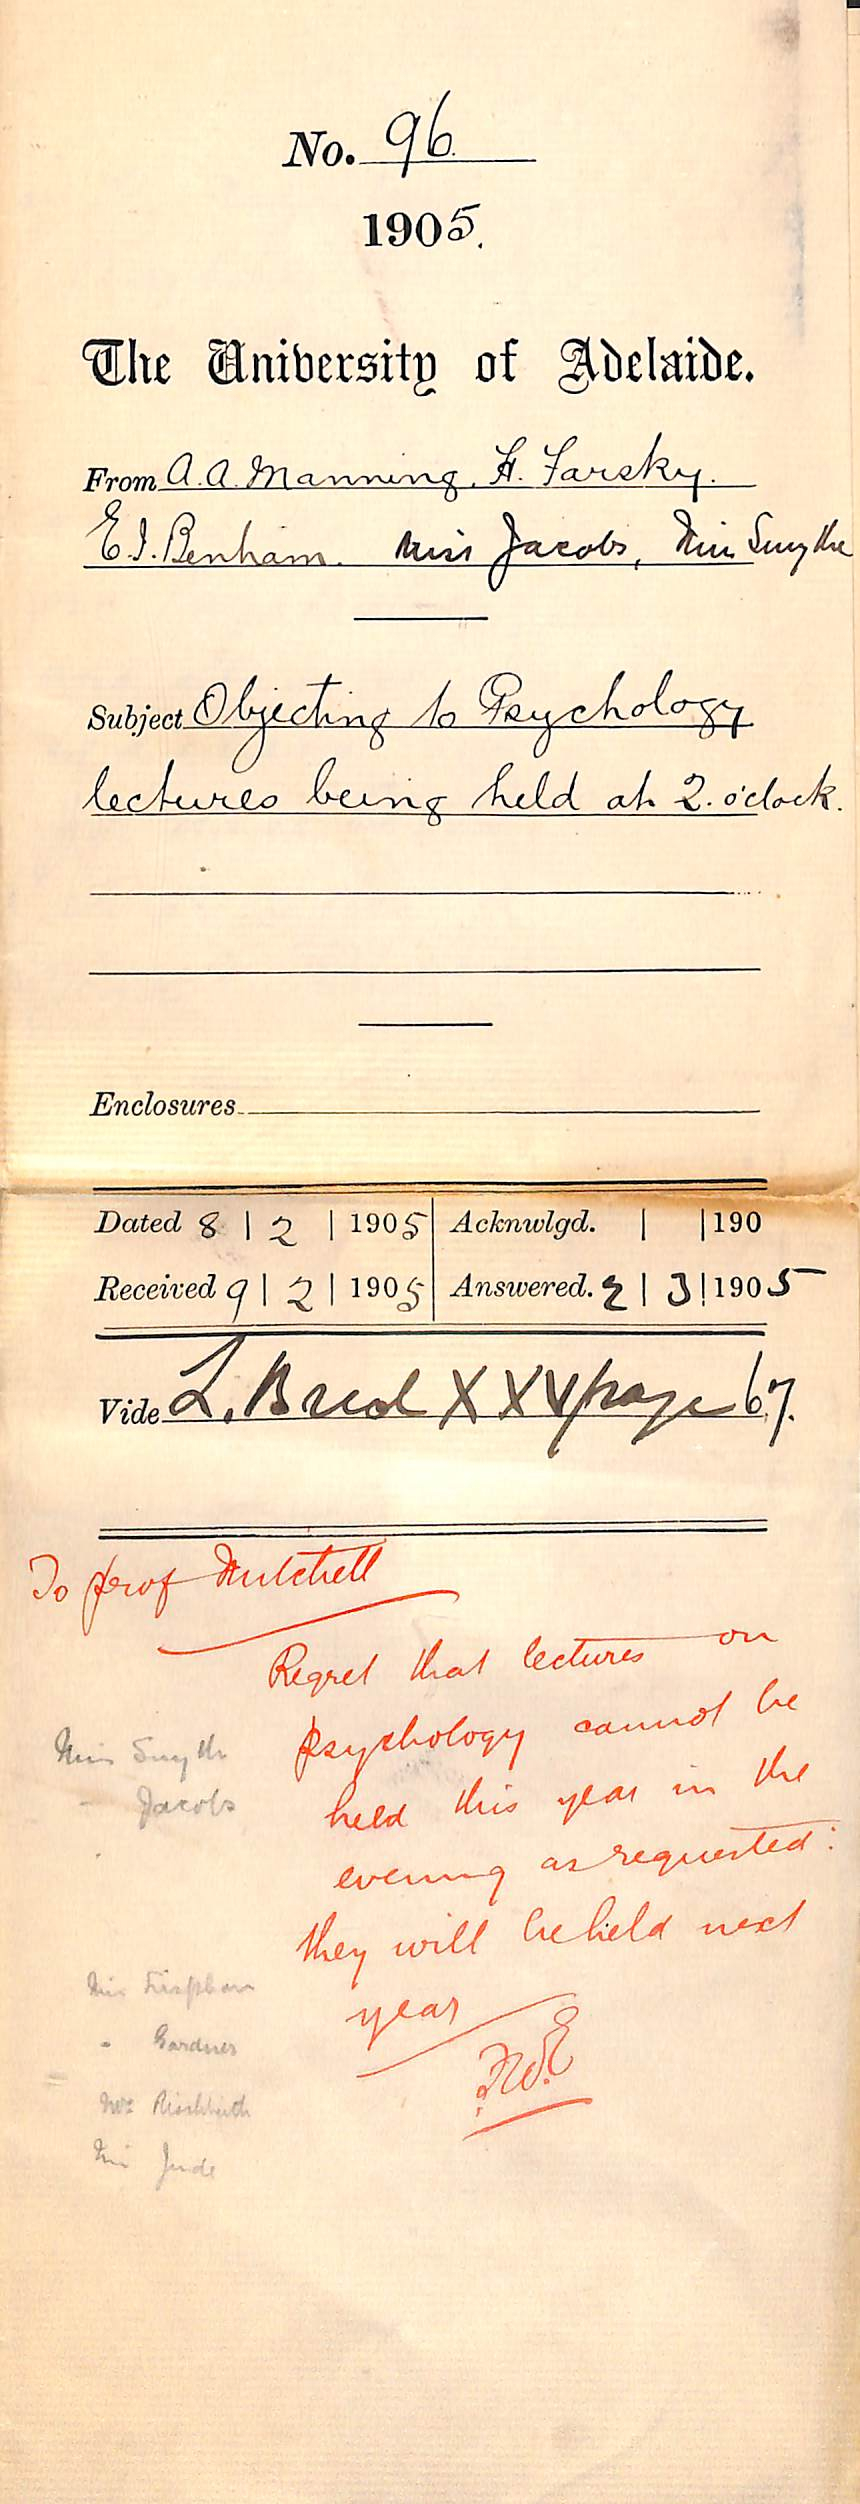 No. 96
1905.
The University of Adelaide.
From A. A. Manning, H. Farsky.
E. I. Benham. Miss Jacobs, Miss Smythe
Subject Objecting to Psychology
lectures being held at 2. o'clock.
Enclosures
Dated 8 | 2 | 1905 Acknwlgd. | | 190
Received 9 | 2 | 1905 Answered. 2 | 3 | 1905
Vide XXV page 67.
To Prof Mitchell
Regret that lectures on
psychology cannot be
held this year in the
evening as requested:
they will be held next
year
Miss Smyth
" Jacobs
Gardner
Jude